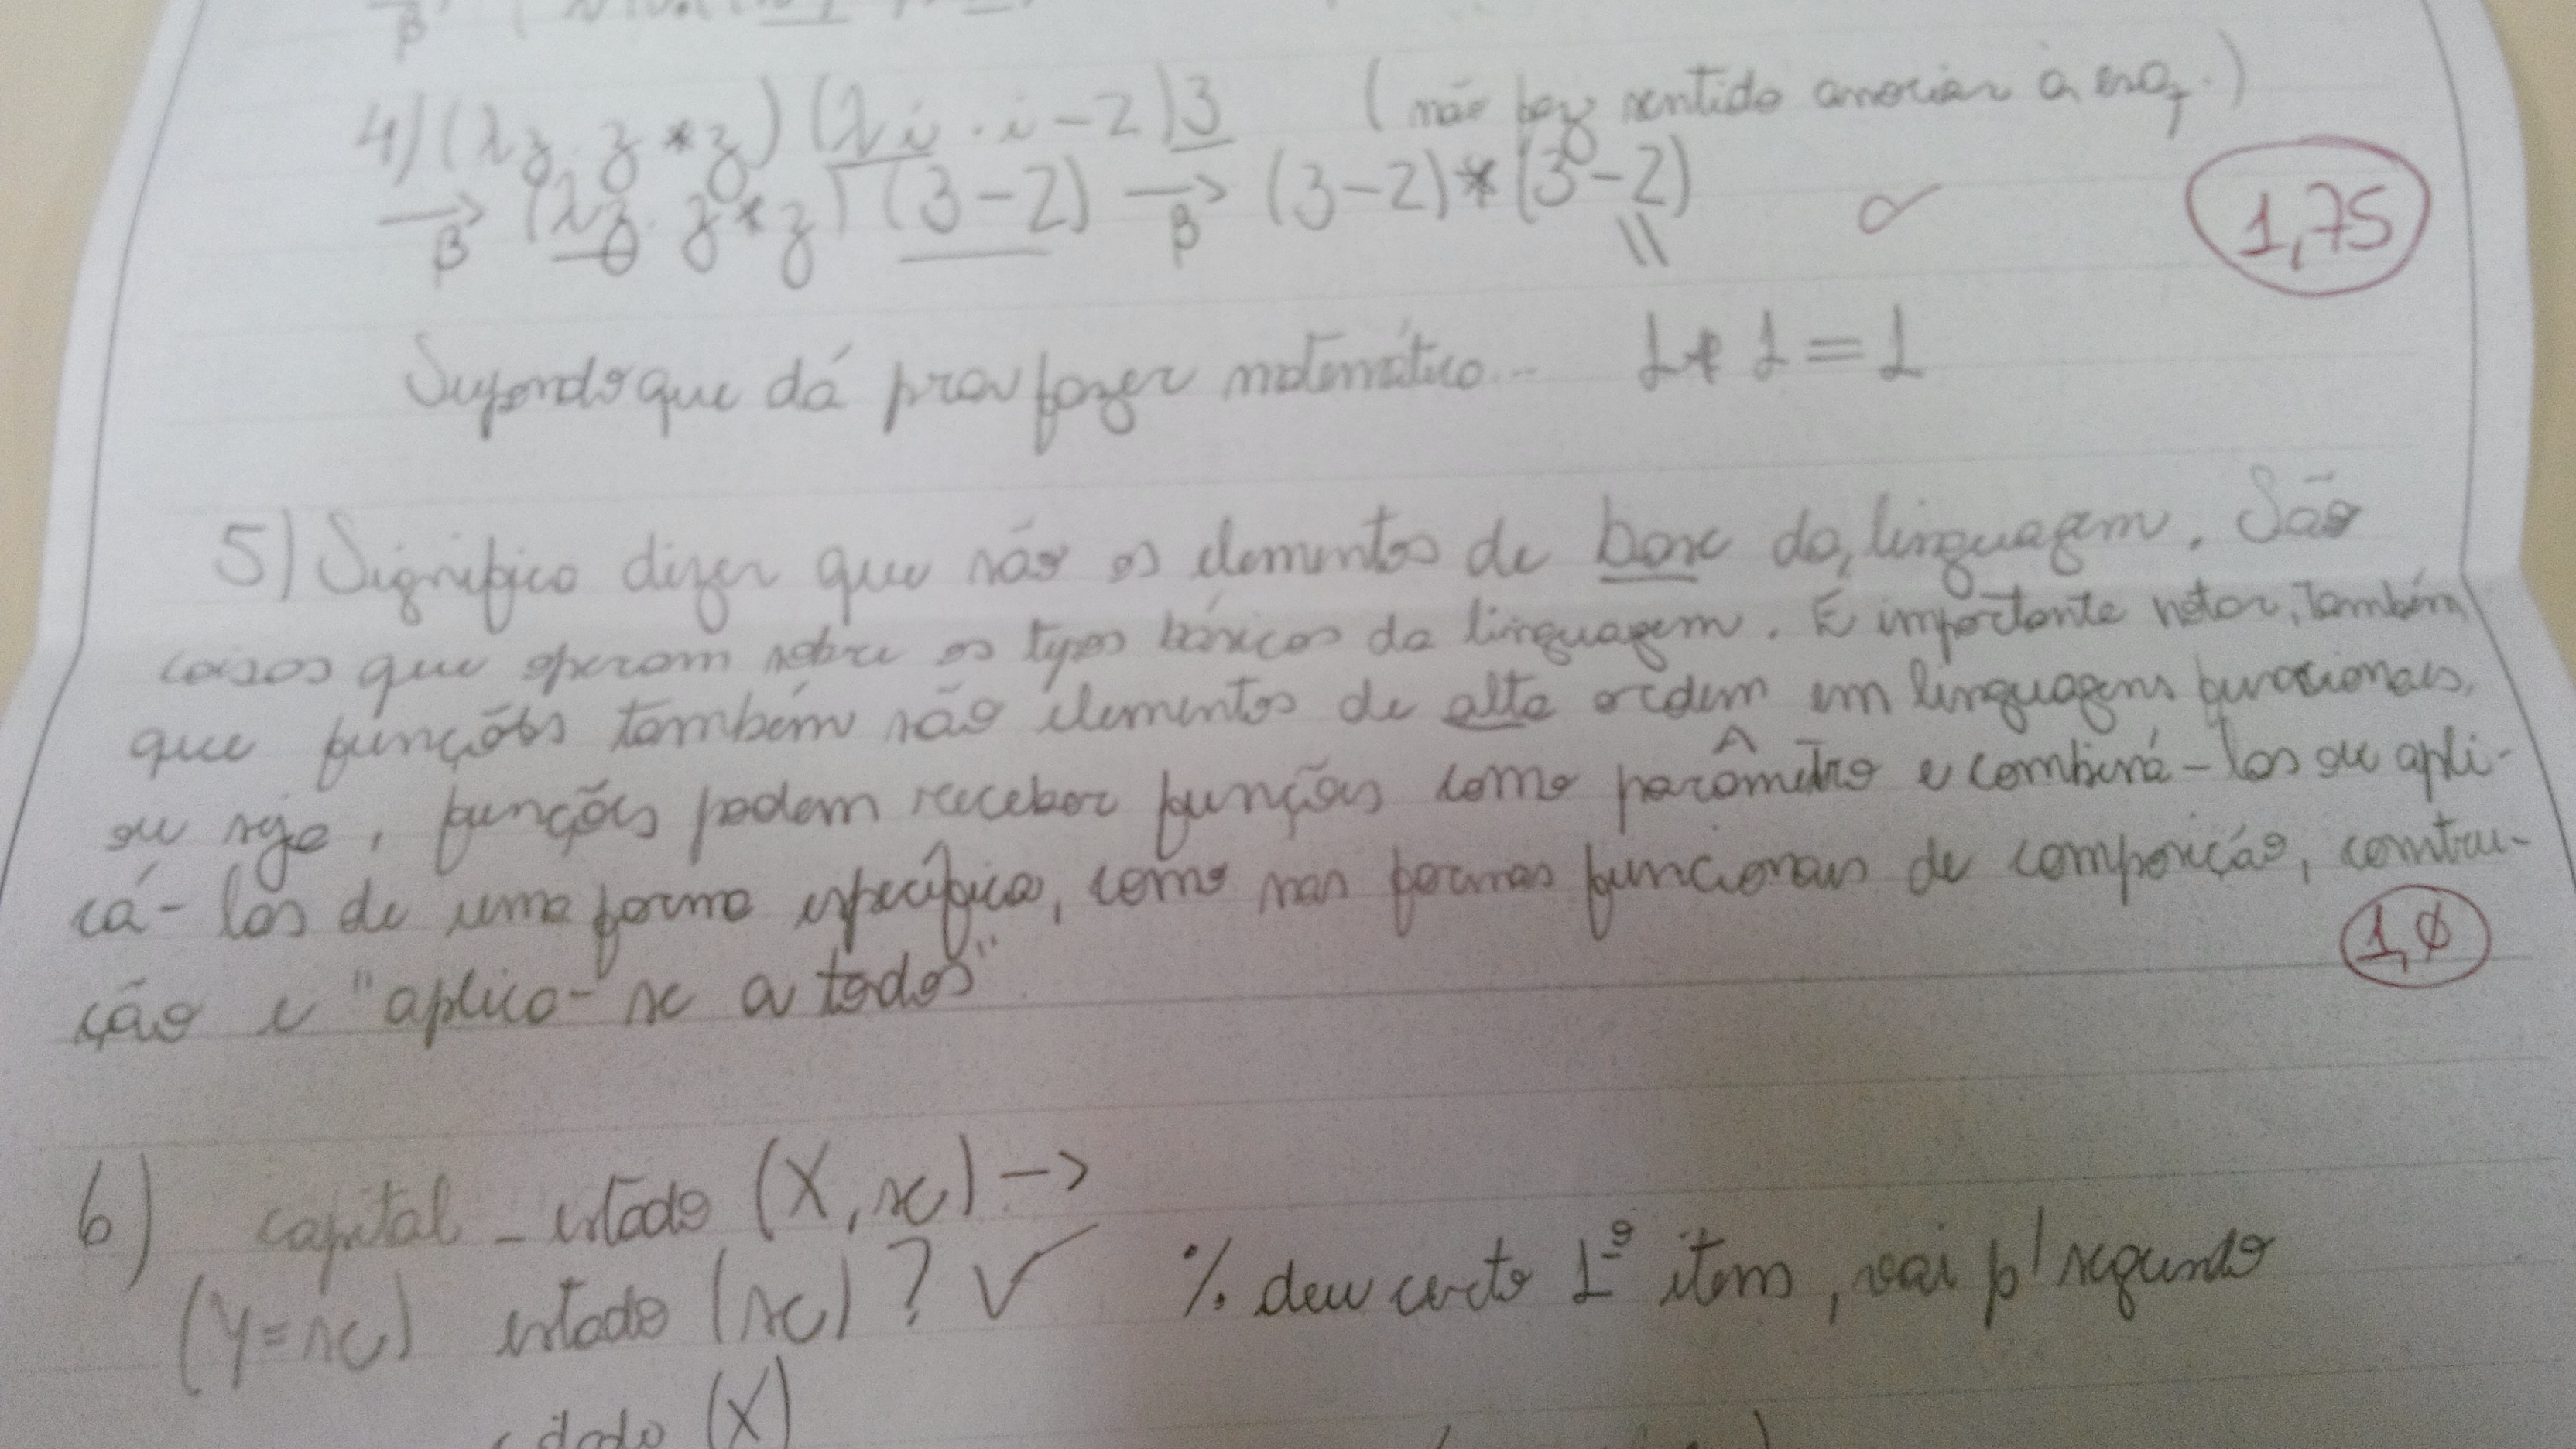 β
4) (λz. z * z) (λi. i - 2) 3 (não faz sentido associar à esq.)
→β (λz. z * z) (3 - 2) →β (3 - 2) * (3 - 2)
1,75
Supondo que dá pra fazer matemática... 1 * 1 = 1
5) Significa dizer que são os elementos de base da linguagem. São
coisas que operam sobre os tipos básicos da linguagem. É importante notar, também
que funções também são elementos de alta ordem em linguagens funcionais,
ou seja, funções podem receber funções como parâmetro e combiná-las ou apli-
cá-las de uma forma específica, como nas formas funcionais de composição, constru-
ção e "aplica-se a todos"
1,0
6) capital_estado (X, sc) →
(Y = sc) estado (sc) ? ✓ % deu certo 1º item, vai p/ segundo
(X)